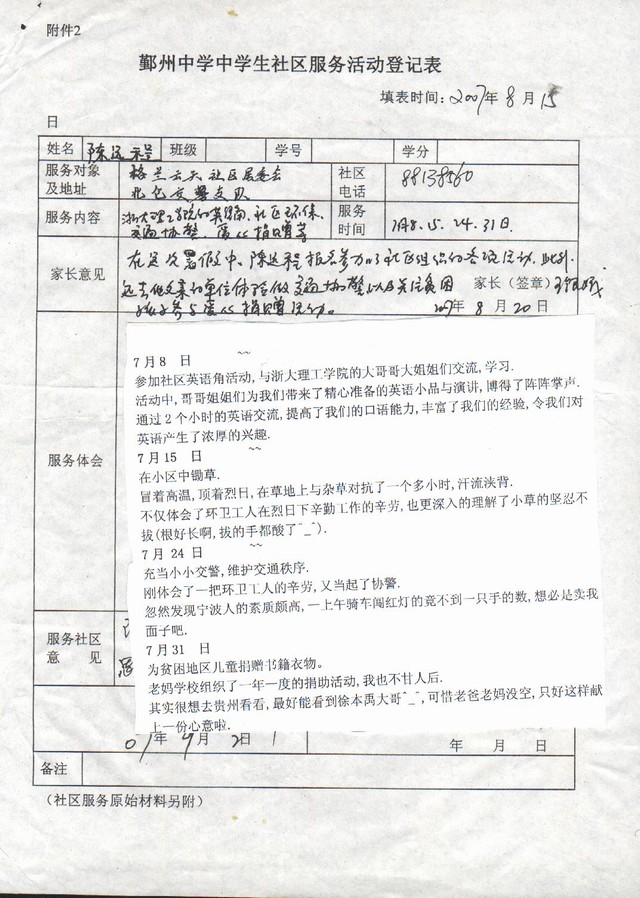 附件2
鄞州中学中学生社区服务活动登记表
填表时间：2007年8月15
日
姓名 陈远程 班级 学号 学分
服务对象及地址 格兰云天社区居委会 社区电话 88138560
北仑交警支队
服务内容 浙大理工学院的英语角、社区环保、交通协警、爱心捐赠等 服务时间 7月8.15.24.31日
家长意见 在是次暑假中，陈远程报名参加了社区组织的各项活动，此外，
家长（签章）
交通协警以及
爱心捐赠活动。 2007年8月20日
服务体会
7月8 日 ~~
参加社区英语角活动,与浙大理工学院的大哥哥大姐姐们交流,学习.
活动中,哥哥姐姐们为我们带来了精心准备的英语小品与演讲,博得了阵阵掌声.
通过2个小时的英语交流,提高了我们的口语能力,丰富了我们的经验,令我们对
英语产生了浓厚的兴趣.
7月15 日 ~~
在小区中锄草.
冒着高温,顶着烈日,在草地上与杂草对抗了一个多小时,汗流浃背.
不仅体会了环卫工人在烈日下辛勤工作的辛劳,也更深入的理解了小草的坚忍不
拔(根好长啊,拔的手都酸了^_^).
7月24 日 ~~
充当小小交警,维护交通秩序.
刚体会了一把环卫工人的辛劳,又当起了协警.
忽然发现宁波人的素质颇高,一上午骑车闯红灯的竟不到一只手的数,想必是卖我
面子吧.
7月31 日
为贫困地区儿童捐赠书籍衣物。
老妈学校组织了一年一度的捐助活动,我也不甘人后.
其实很想去贵州看看,最好能看到徐本禹大哥^_^,可惜老爸老妈没空,只好这样献
上一份心意啦.
服务社区
意 见
07年9月2日
年 月 日
备注
（社区服务原始材料另附）